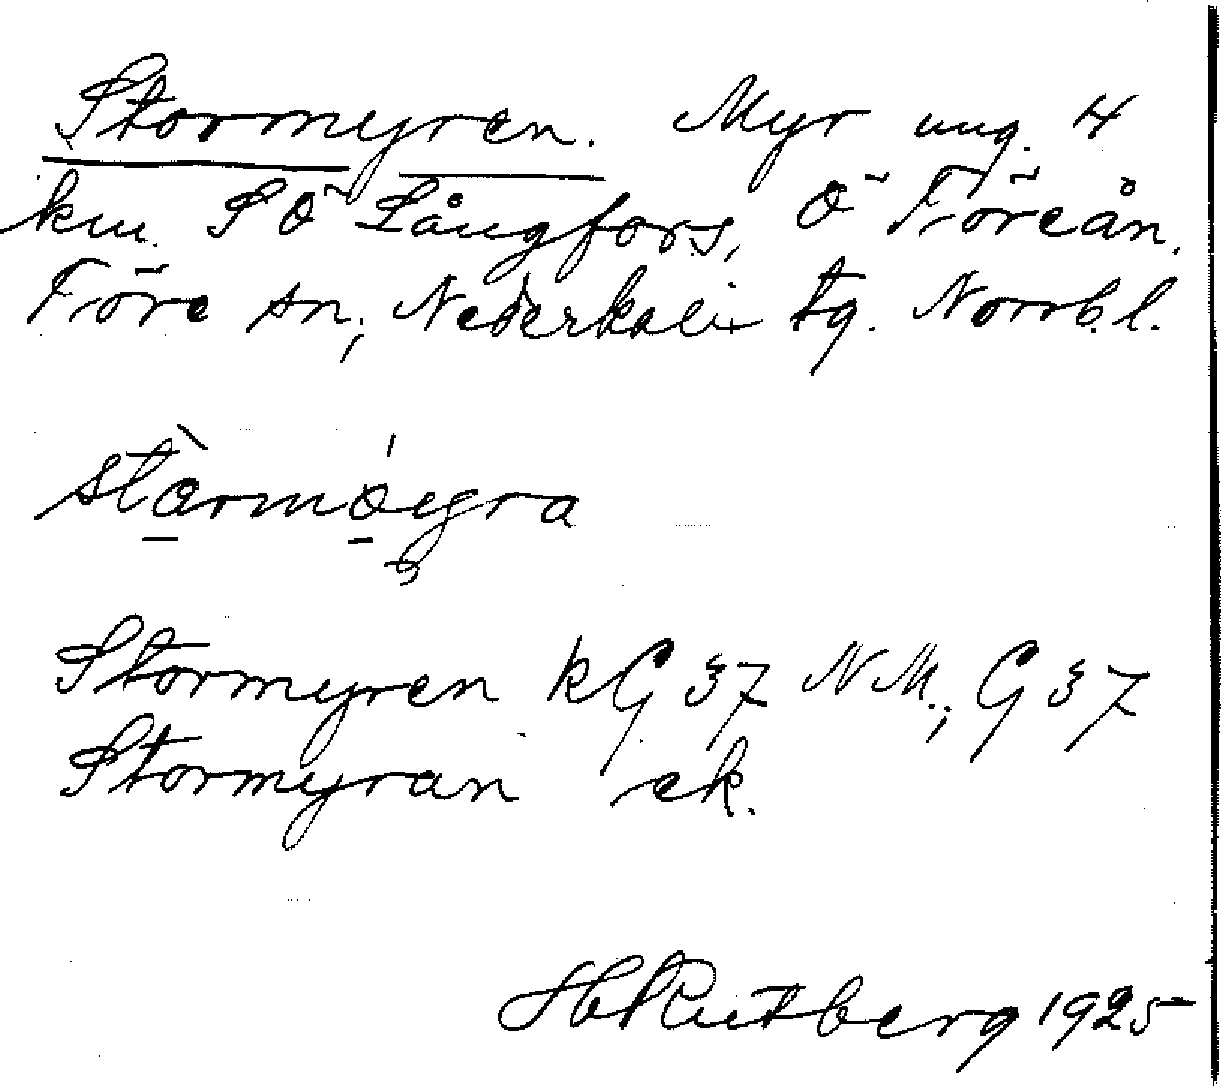 Stormyren. Myr ung. 4
km. SÖ Långfors, Ö Töreån.
Töre sn, Nederkalix tg. Norrb. l.
Stormyren kG 37 N.M.; G 37
Stormyran ek.
Hl Rutberg 1925